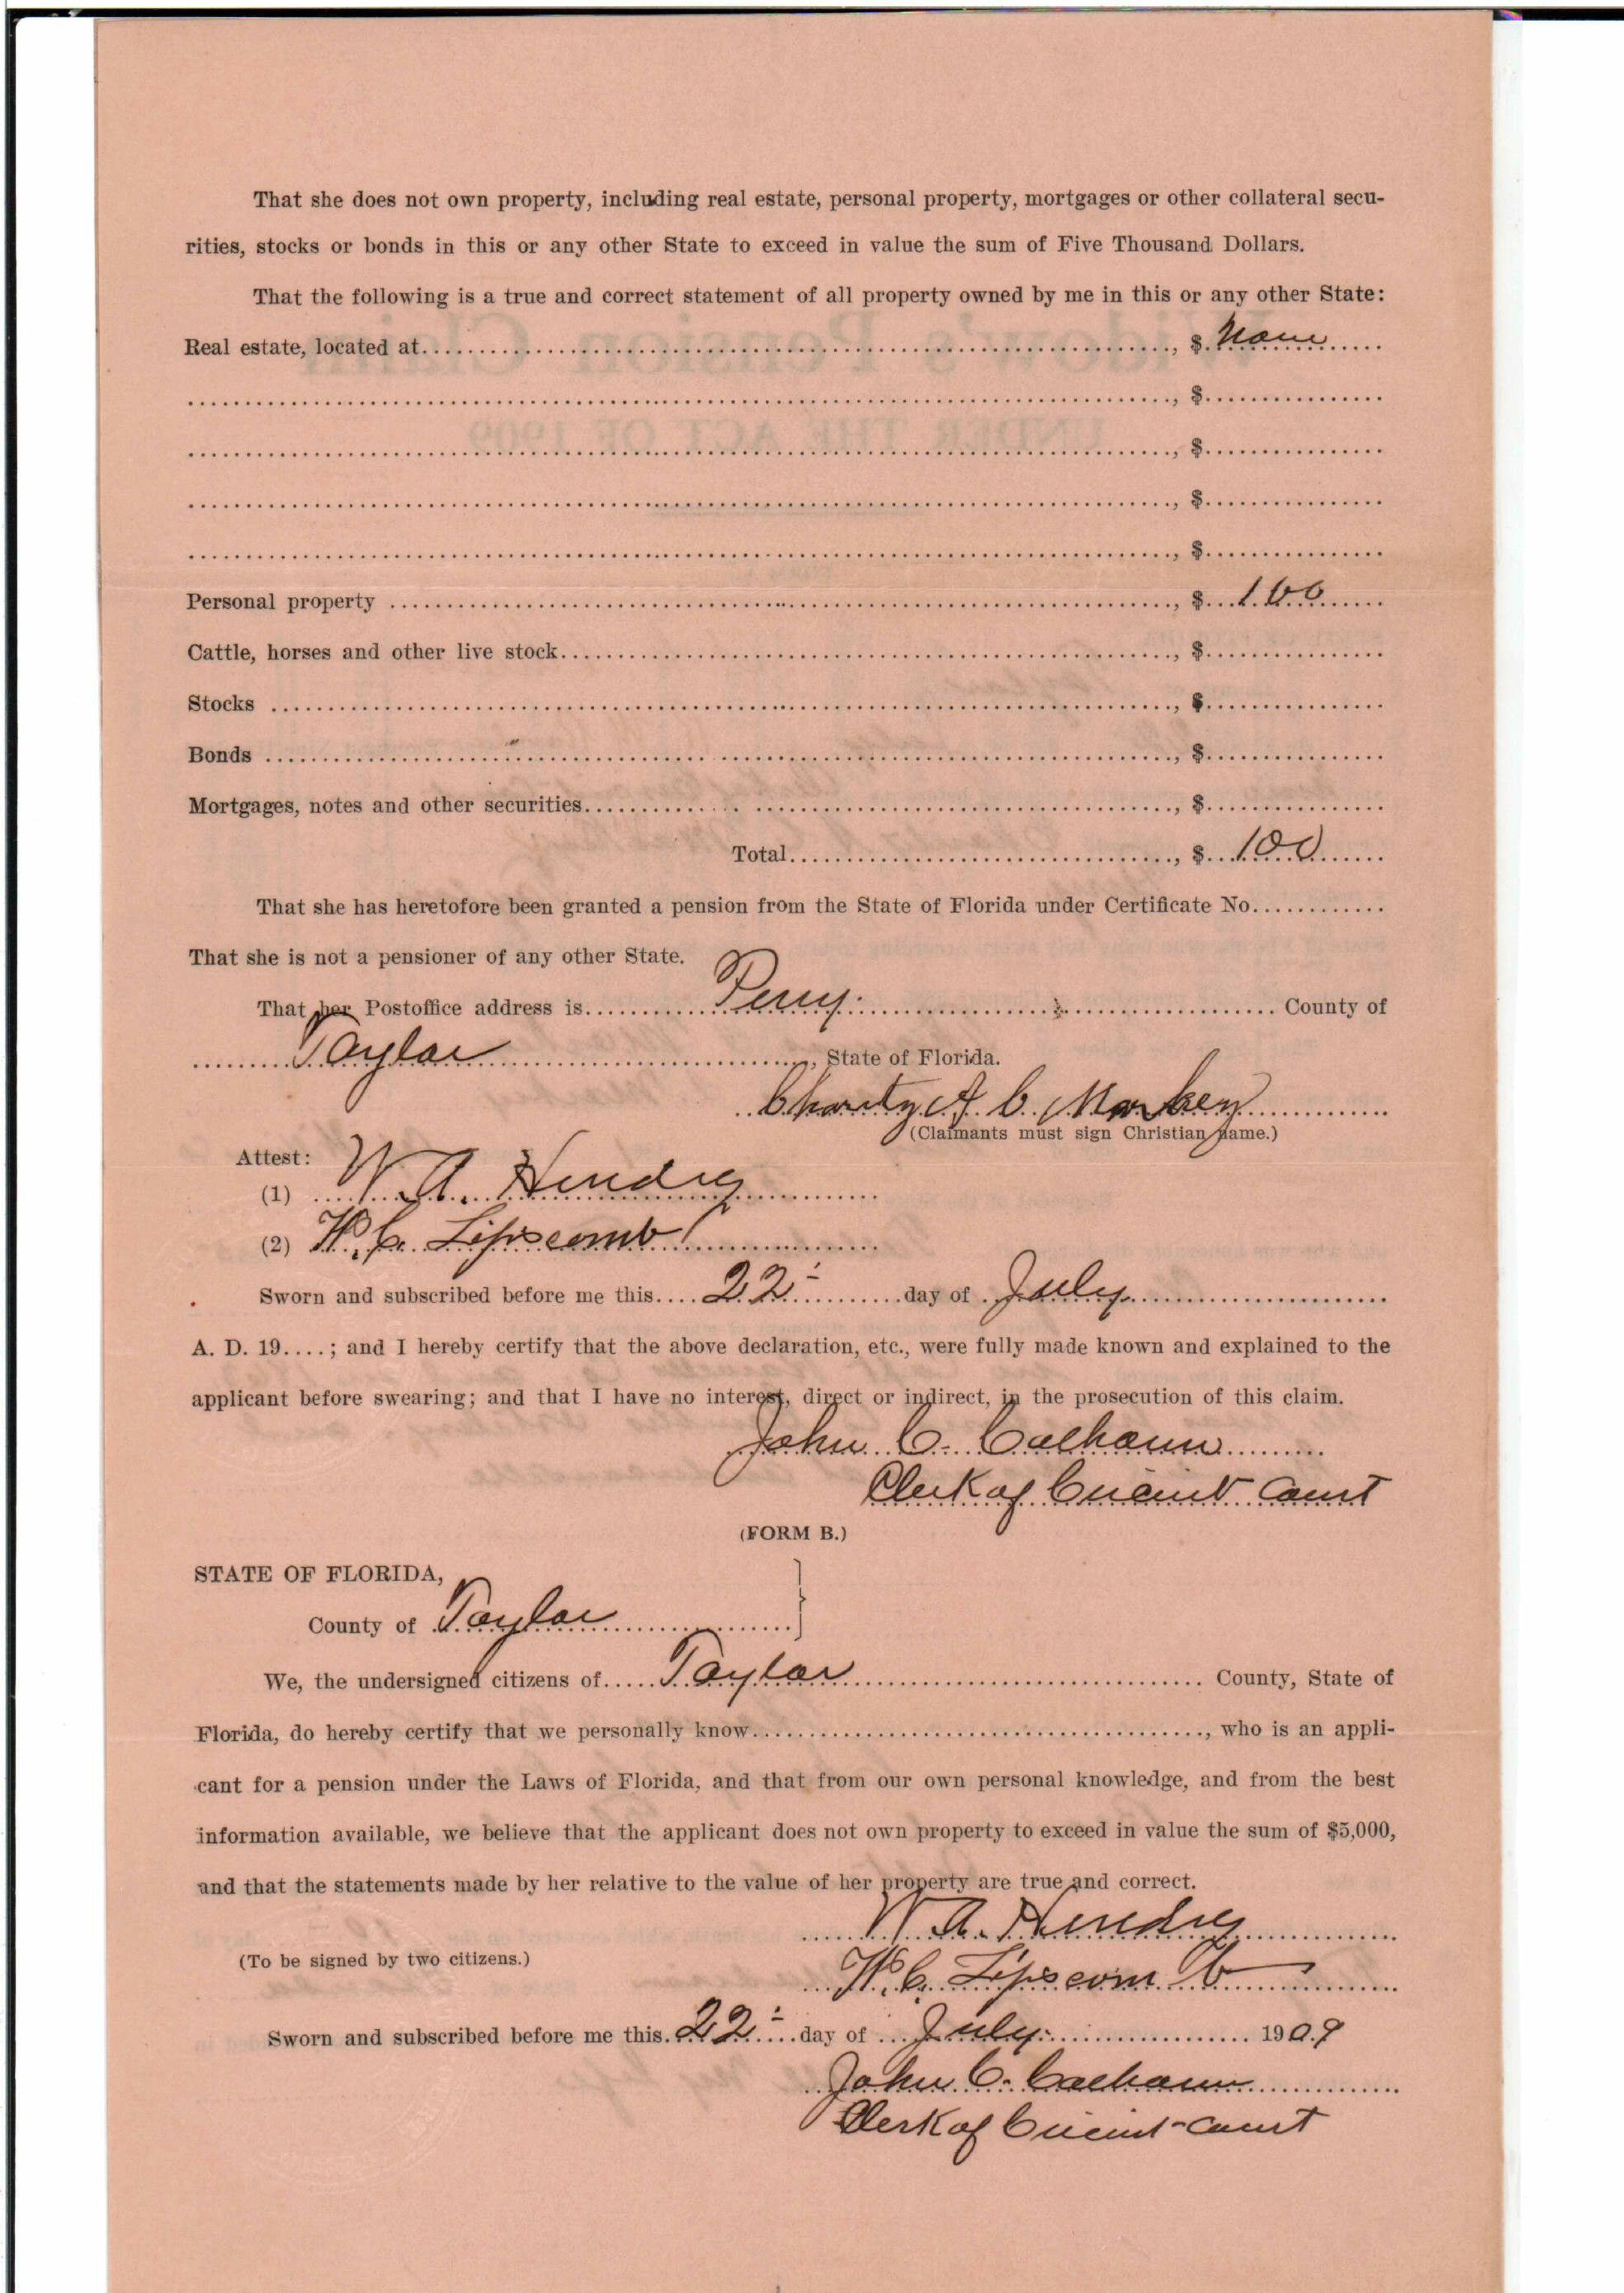 That she does not own property, including real estate, personal property, mortgages or other collateral secu-
rities, stocks or bonds in this or any other State to exceed in value the sum of Five Thousand Dollars.
That the following is a true and correct statement of all property owned by me in this or any other State:
Real estate, located at............, $ None
............, $............
............, $............
............, $............
............, $............
Personal property ............, $ 100
Cattle, horses and other live stock............, $............
Stocks ............, $............
Bonds ............, $............
Mortgages, notes and other securities............, $............
Total............, $ 100
That she has heretofore been granted a pension from the State of Florida under Certificate No............
That she is not a pensioner of any other State.
That her Postoffice address is............ Perry ............ County of
Taylor ............, State of Florida.
Charity A C
(Claimants must sign Christian name.)
Attest:
(1) W. A. Hendry
(2) W. C. Lipscomb
Sworn and subscribed before me this.... 22 ....day of July
A. D. 19....; and I hereby certify that the above declaration, etc., were fully made known and explained to the
applicant before swearing; and that I have no interest, direct or indirect, in the prosecution of this claim.
John C. Calhoun
Clerk of Circuit Court
(FORM B.)
STATE OF FLORIDA,
County of Taylor
We, the undersigned citizens of..... Taylor ............ County, State of
Florida, do hereby certify that we personally know............, who is an appli-
cant for a pension under the Laws of Florida, and that from our own personal knowledge, and from the best
information available, we believe that the applicant does not own property to exceed in value the sum of $5,000,
and that the statements made by her relative to the value of her property are true and correct.
W. A. Hendry
(To be signed by two citizens.)
W. C. Lipscomb
Sworn and subscribed before me this. 22 ....day of ... July ............ 1909
John C. Calhoun
Clerk of Circuit Court